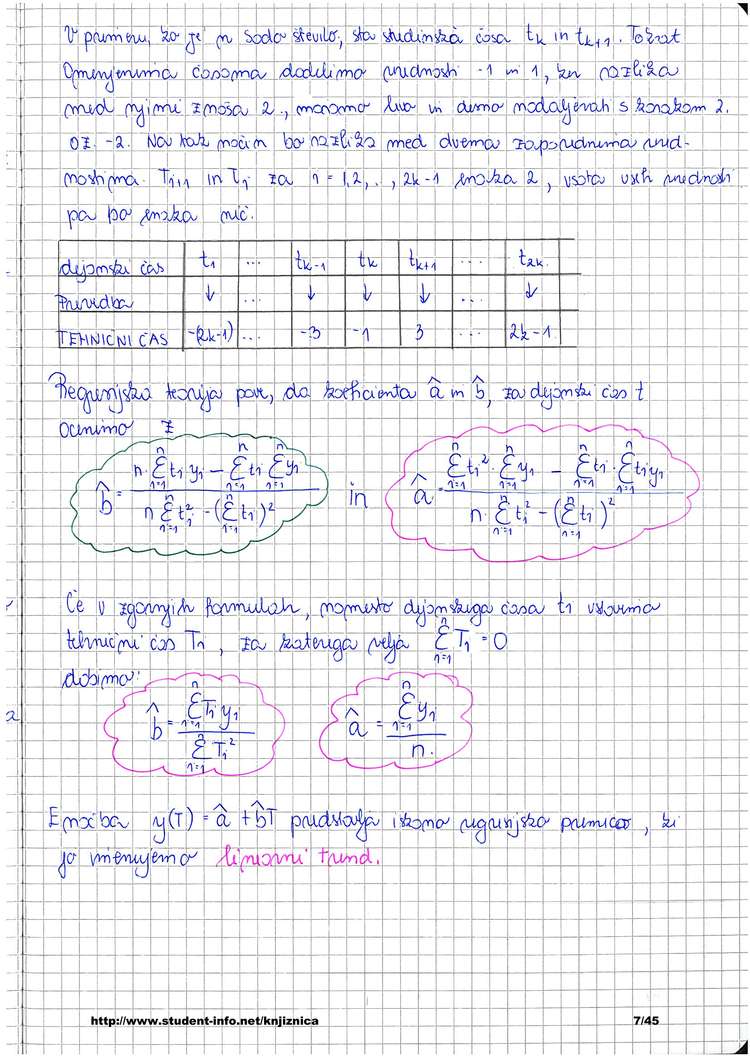 V primeru, ko je n sodo število, sta sredinska časa tk in tk+1. Tokrat
omenjenima časoma dodelimo vrednosti -1 in 1, ker razlika
med njimi znaša 2, moramo levo in desno nadaljevati s korakom 2
oz. -2. Na tak način bo razlika med dvema zaporednima vred-
nostima Ti+1 in Ti za i = 1,2,..., 2k-1 enaka 2, vsota vseh vrednosti
pa bo enaka nič.
dejanski čas t1 ... tk-1 tk tk+1 ... t2k
Prevedba ↓ ... ↓ ↓ ↓ ... ↓
TEHNIČNI ČAS -(2k-1) ... -3 -1 3 ... 2k-1
Regresijska teorija pove, da koeficienta â in b̂, za dejanski čas t
ocenimo z
b̂ = (n·Σti yi − Σti Σyi) / (n Σti² − (Σti)²) in â = (Σti²·Σyi − Σti·Σti yi) / (n·Σti² − (Σti)²)
Če v zgornjih formulah, namesto dejanskega časa ti vstavimo
tehnični čas Ti, za katerega velja Σ Ti = 0
dobimo:
b̂ = ΣTi yi / ΣTi² â = Σyi / n
Enačba y(T) = â + b̂T predstavlja iskano regresijsko premico, ki
jo imenujemo linearni trend.
http://www.student-info.net/knjiznica 7/45